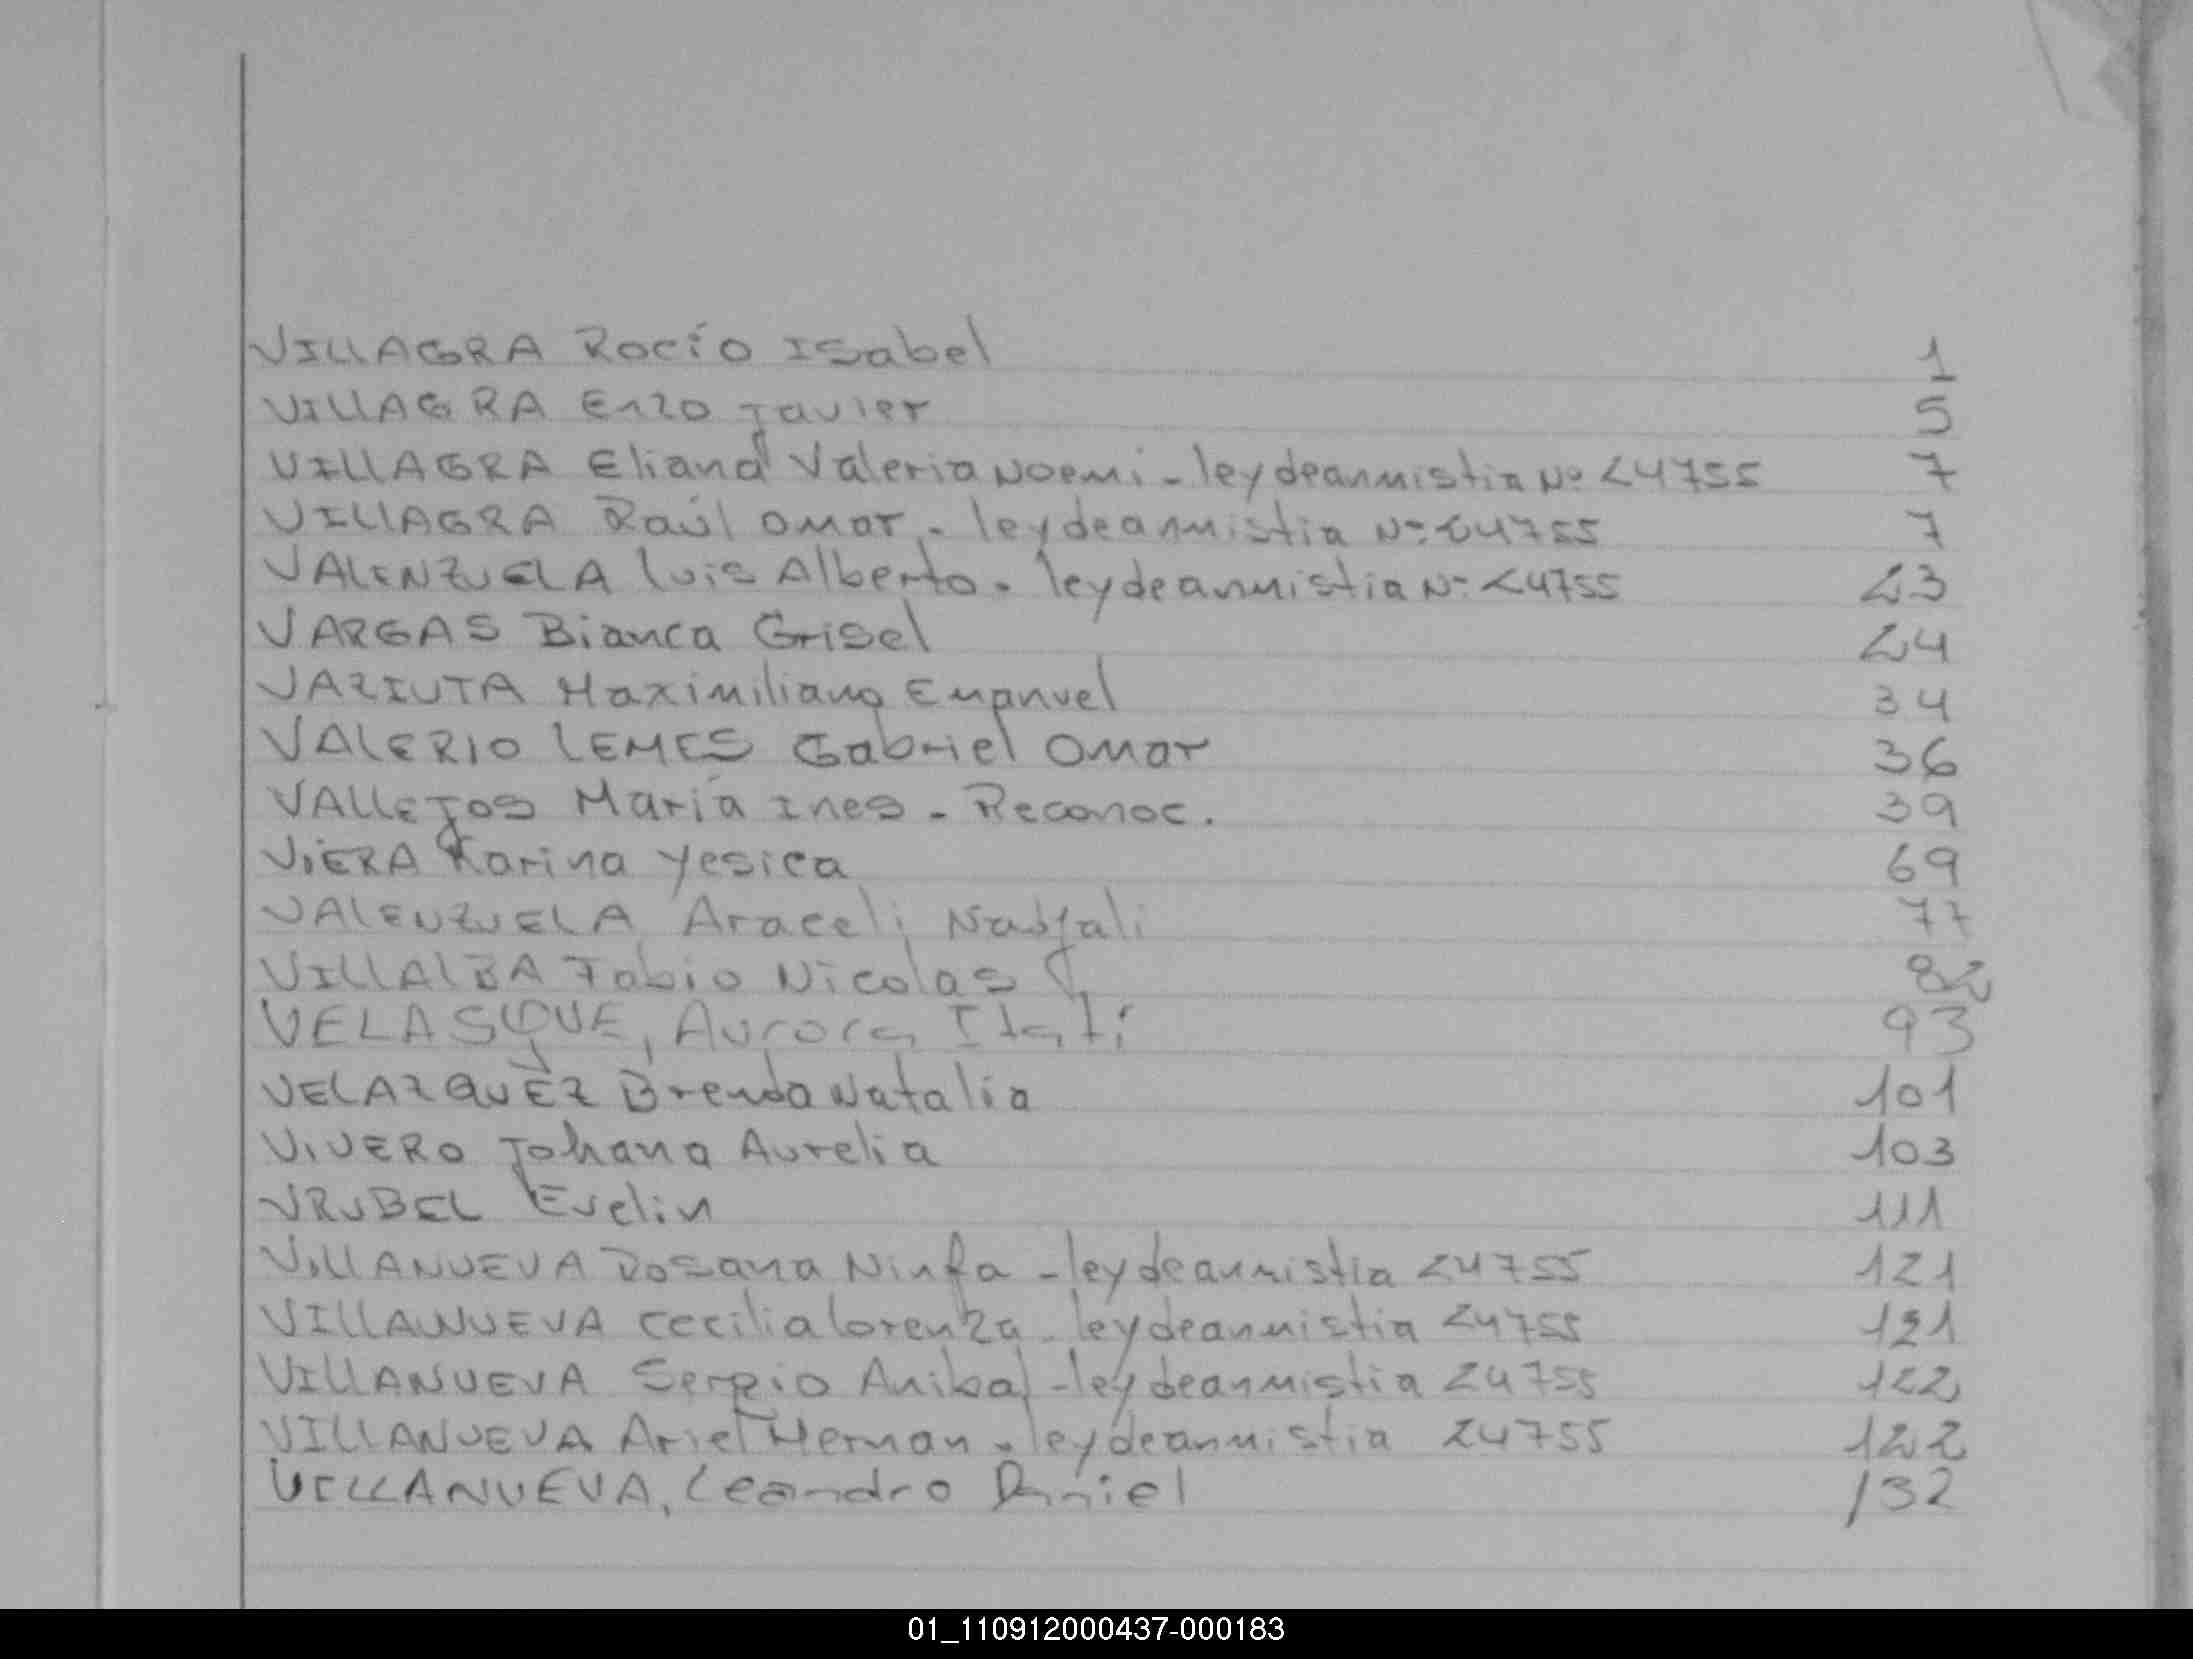 VILLAGRA Rocío Isabel 1
VILLAGRA Enzo Javier 5
VILLAGRA Eliana Valeria Noemi - ley de anmistia Nº 24755 7
VILLAGRA Raúl Omar - ley de anmistia Nº 24755 7
VALENZUELA Luis Alberto - ley de anmistia Nº 24755 23
VARGAS Bianca Grisel 24
VAZIUTA Maximiliano Emanuel 34
VALERIO LEMES Gabriel Omar 36
VALLEJOS María Ines - Reconoc. 39
VIERA Karina Yesica 69
VALENZUELA Araceli 77
VILLALBA Fabio Nicolas 82
VELASQUE, Aurora Itatí 93
VELAZQUEZ Brenda Natalia 101
VIVERO Johana Aurelia 103
VRUBEL Evelin 111
VILLANUEVA Rosana Ninfa - ley de anmistia 24755 121
VILLANUEVA Cecilia Lorenza - ley de anmistia 24755 121
VILLANUEVA Sergio Anibal - ley de anmistia 24755 122
VILLANUEVA Ariel Hernan - ley de anmistia 24755 122
VILLANUEVA, Leandro Daniel 132
01_110912000437-000183